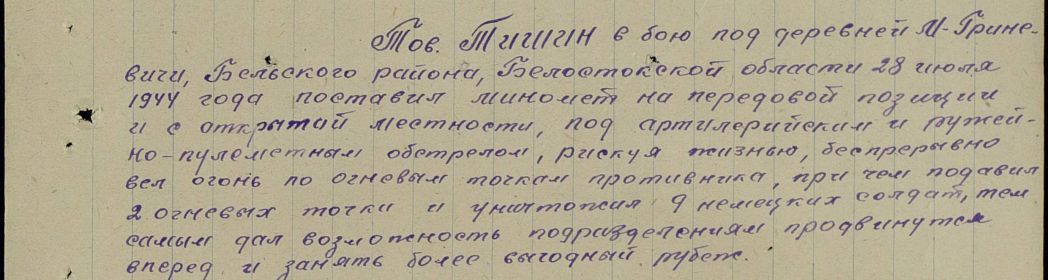 Тов. ТИШИН в бою под деревней М-Грине-
вичи, Бельского района, Белостокской области 28 июля
1944 года поставил миномет на передовой позиции
и с открытой местности, под артилерийским и ружей-
но-пулеметным обстрелом, рискуя жизнью, беспрерывно
вел огонь по огневым точкам противника, при чем подавил
2 огневых точки и уничтожил 9 немецких солдат, тем
самым дал возможность подразделениям продвинутся
вперед и занять более выгодный рубеж.